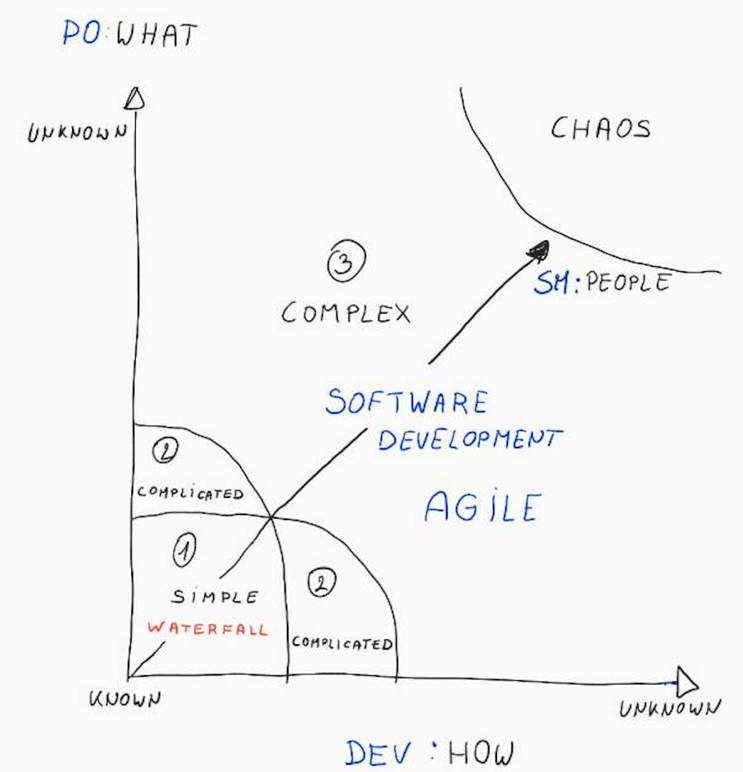 PO: WHAT
UNKNOWN
CHAOS
3
COMPLEX
SM: PEOPLE
SOFTWARE
DEVELOPMENT
AGiLE
2
COMPLiCATED
1
SiMPLE
WATERFALL
2
COMPLICATED
KNOWN
UNKNOWN
DEV : HOW